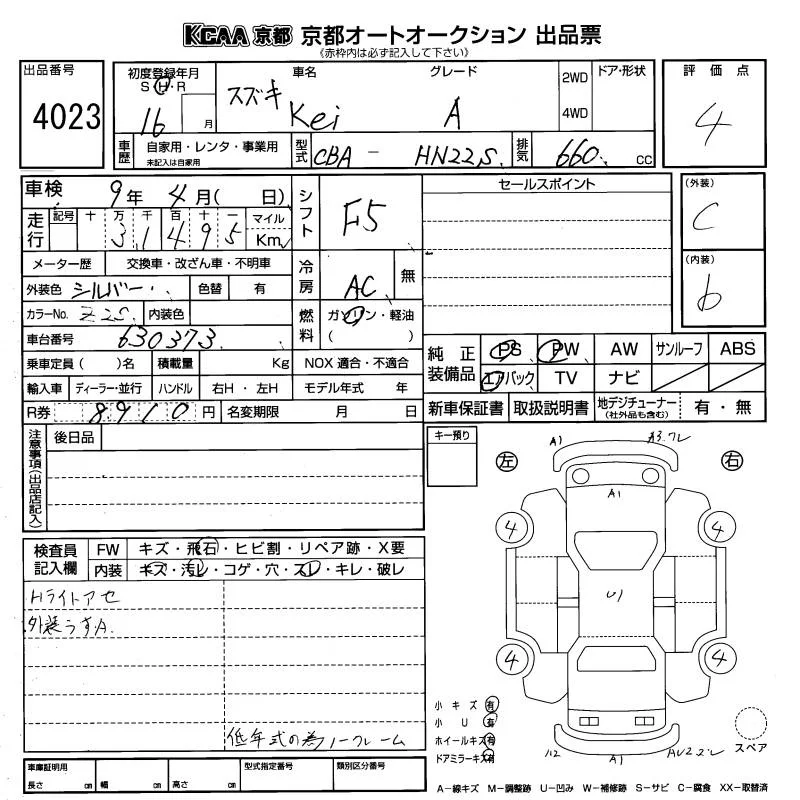 KCAA 京都 京都オートオークション 出品票
《赤枠内は必ず記入して下さい》
出品番号 4023
初度登録年月 S H R 16 月
車名 スズキ Kei
グレード A
2WD 4WD
ドア・形状
評価点 4
車歴 自家用・レンタ・事業用 未記入は自家用
型式 CBA - HN22S
排気 660 CC
車検 9年 4月( 日)
シフト F5
セールスポイント
(外装) C
走行 記号 十 万 千 百 十 一 マイル
3 1 4 9 5 Km
(内装) b
メーター歴 交換車・改ざん車・不明車
冷房 AC 無
外装色 シルバー 色替 有
カラーNo. Z2S 内装色
燃料 ガソリン・軽油 ( )
車台番号 630373
純正装備品 PS PW AW サンルーフ ABS
エアバック TV ナビ
乗車定員( )名 積載量 Kg NOX 適合・不適合
輸入車 ディーラー・並行 ハンドル 右H・左H モデル年式 年
R券 8910円 名変期限 月 日
新車保証書 取扱説明書 地デジチューナー (社外品も含む) 有・無
注意事項(出品店記入)
後日品
キー預り
左 右
A1 A3.ワレ
A1
4 4
U1
4 4
検査員記入欄 FW キズ・飛石・ヒビ割・リペア跡・X要
内装 キズ・汚レ・コゲ・穴・スレ・キレ・破レ
Hライトアセ
外装うすA.
低年式の為ノークレーム
小キズ 有
小 U 有
ホイールキズ 有
ドアミラーキズ 有
A1
スペア
車庫証明用 長さ cm 幅 cm 高さ cm
型式指定番号 類別区分番号
A－線キズ M－調整跡 U－凹み W－補修跡 S－サビ C－腐食 XX－取替済